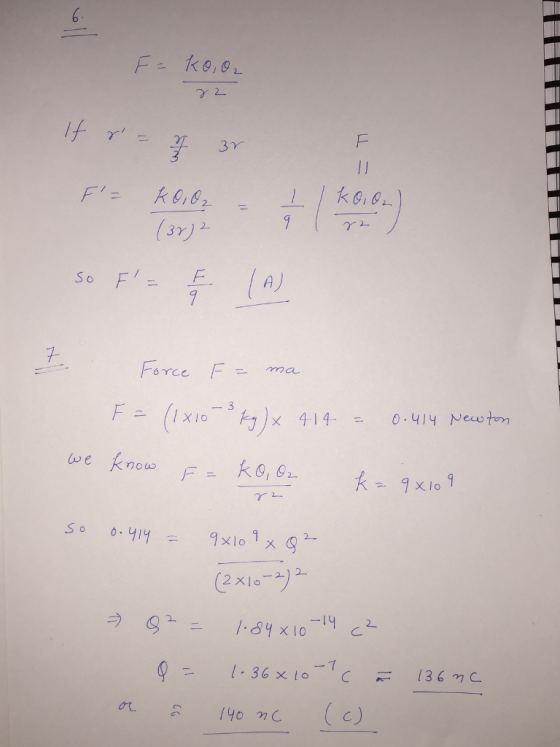 6.
F = kQ1Q2 / r2
If r' = r/3 3r
F
||
F' = kQ1Q2 / (3r)2 = 1/9 ( kQ1Q2 / r2 )
so F' = F/9 (A)
7
Force F = ma
F = (1x10-3 kg) x 414 = 0.414 Newton
we know F = kQ1Q2 / r2 k = 9x10 9
so 0.414 = 9x10 9 x Q2 / (2x10-2)2
⇒ Q2 = 1.84x10-14 C2
Q = 1.36x10-7 C ≈ 136 nC
or ≈ 140 nC (C)